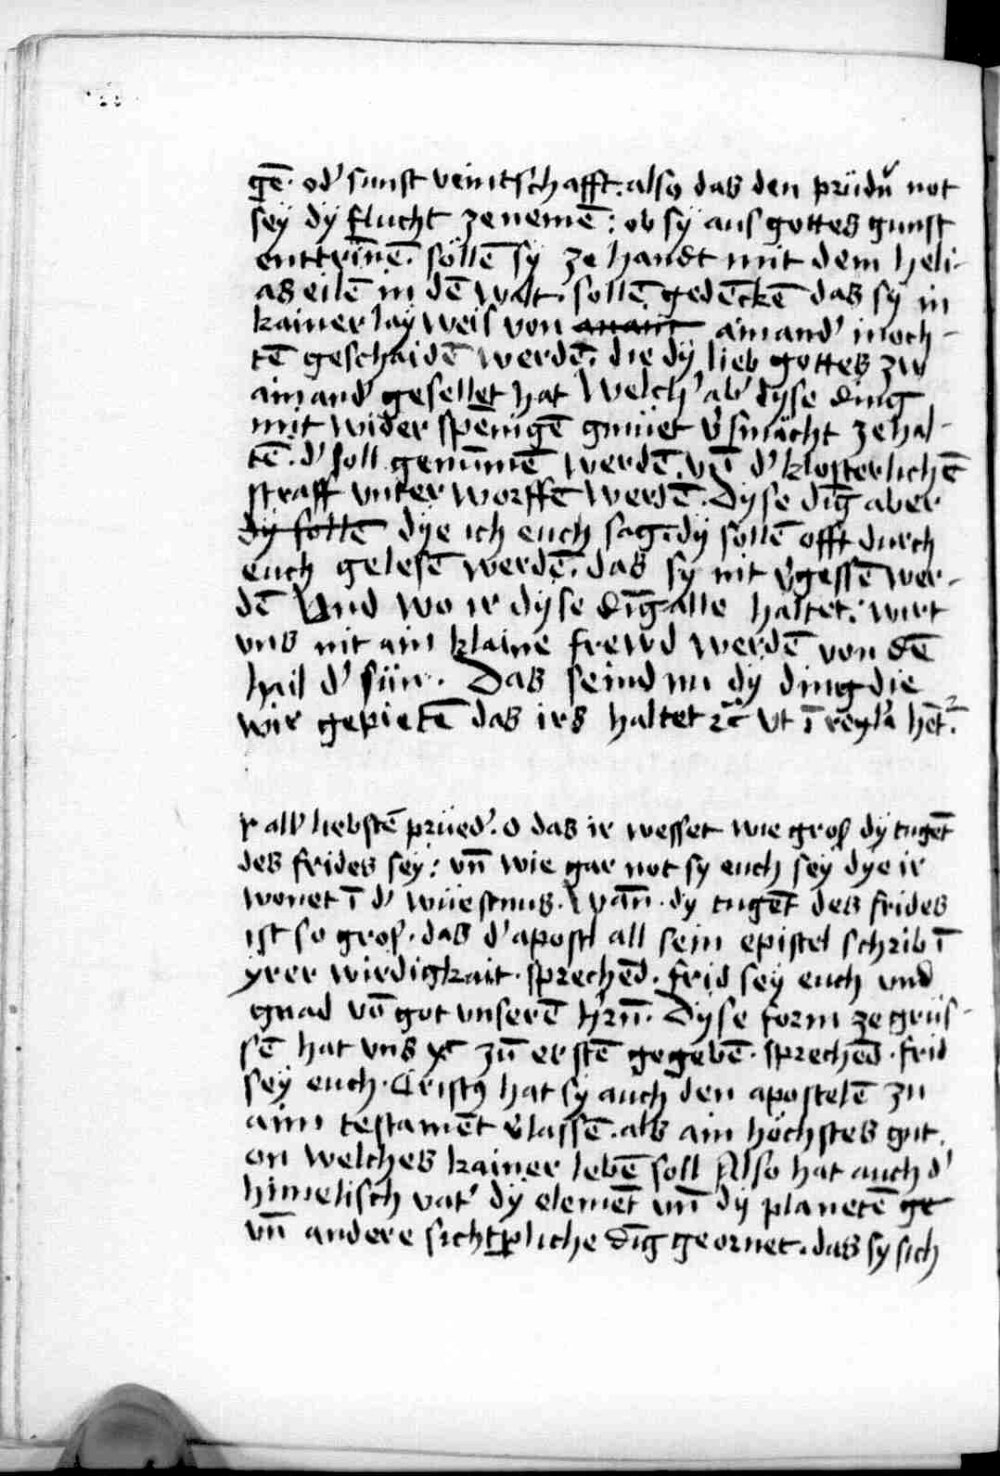 gē. od' sunst veintschafft. also das den prüdn not
sey dÿ flucht ze nemē: ob sy aus gottes gunst
enttrinē. sollē sy ze handt mit dem heli-
as eilē in dē walt. sollē gedēckē das sy in
kainer lay weis von ainand' moch-
tē geschaidē werdē. die dÿ lieb gottes zw
ainand' gesellet hat Welch' ab' dyse ding
mit wider spēnigē gmüet v'smacht ze hal-
tē. d' soll genūmē werdē vn̄ d' klosterlichē
straff vnter worffē werdē. Dyse dīg aber
dÿ sollē dÿe ich euch sag. dÿ sollē offt durch
euch gelesē werdē. das sy nit v'gessē wer-
dē Vnd wo ir dyse dīg alle haltet: wirt
vns nit ain klaine frewd werdē von dē
hail d' sün. Das seind nu dy ding die
wir gepietē das irs haltet ꝛc̄ vt ī reyla hēt.
r all' liebstē prüed'. o das ir wesset wie groß dÿ tugēt
des frides sey: vn̄ wie gar not sy euch sey dye ir
wonet ī d' wüestnus. Wān. dy tugēt des frides
ist so groß. das d' apostl all sein epistel schrib ī
yrer wirdigkait. sprechēd. frid sey euch vnd
gnad vō got vnserē hrn̄. Dyse form ze grüs-
sē hat vns xc̄ zū erstē gegebē. sprechēd. frid
sey euch. Cristꝰ hat sy auch den apostelē zu
aim testamēt v'lassē. als ain höchstes gut.
on welches kainer lebē soll Also hat auch d'
himelisch vat' dÿ elemēt vn̄ dÿ planetē ge
vn̄ andere sichtpliche dīg geornet. das sy sich